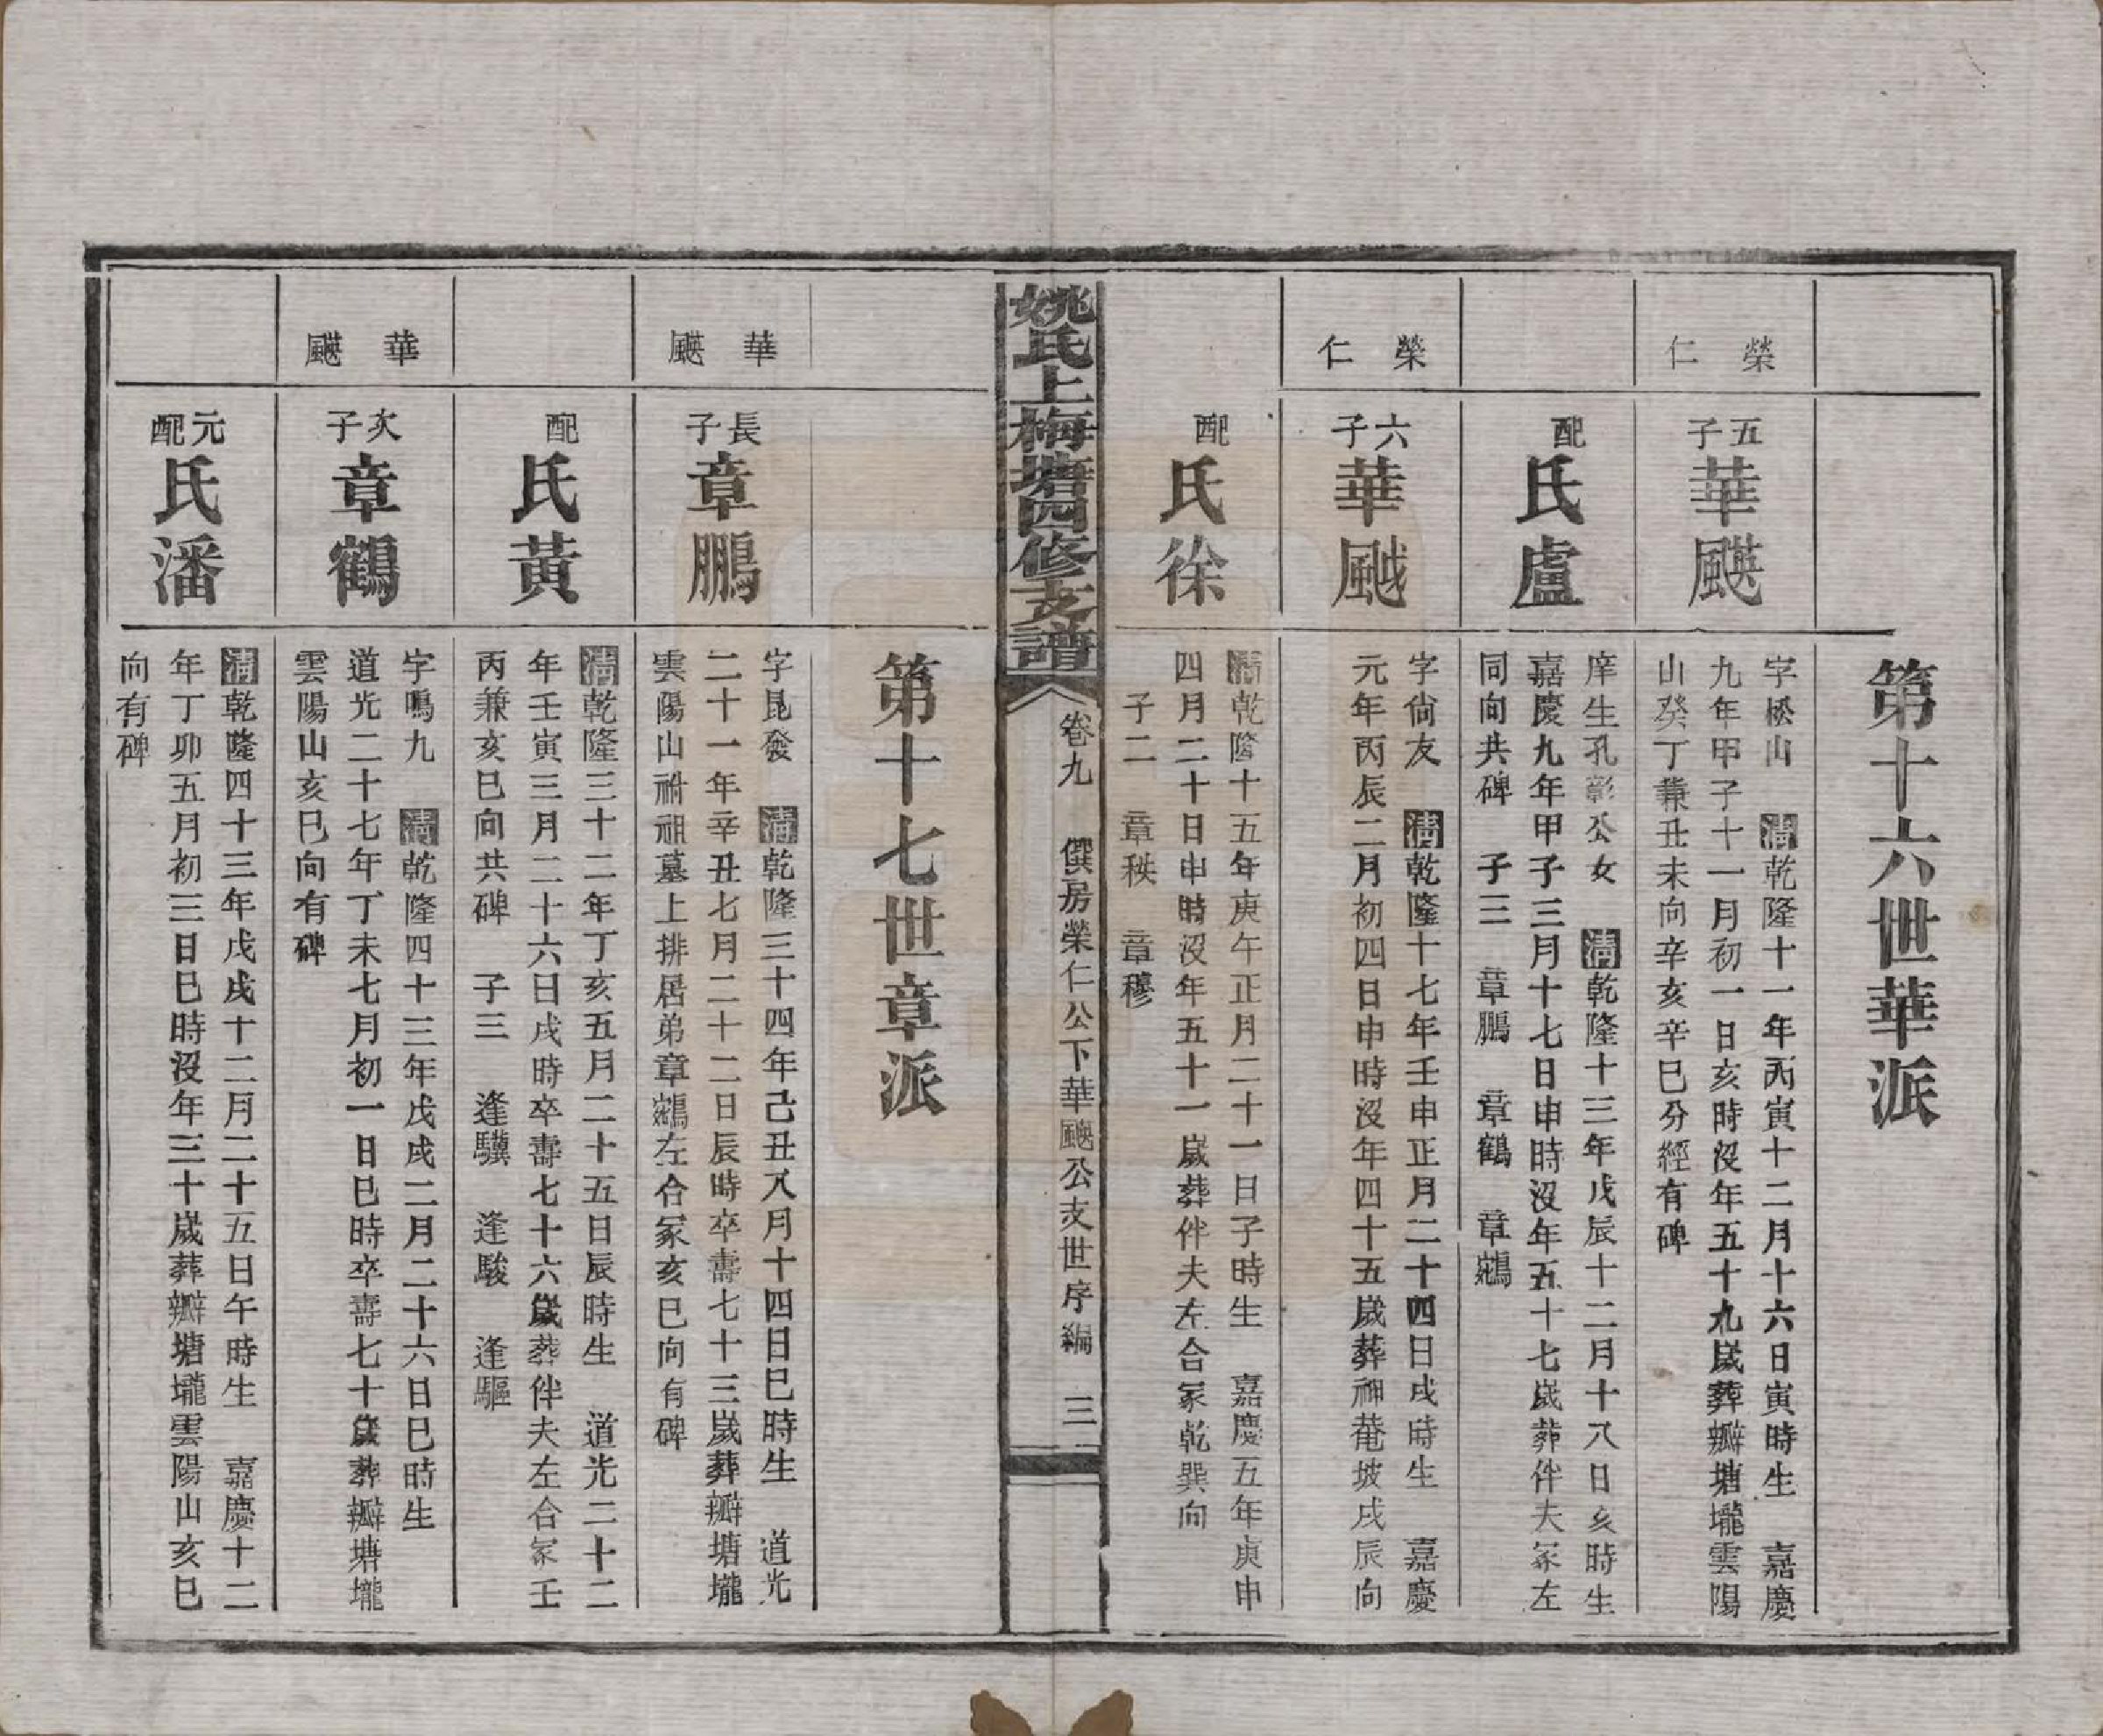 第十六世華派
榮仁
五子
華颼
字松山　清乾隆十一年丙寅十二月十六日寅時生　嘉慶
九年甲子十一月初一日亥時沒年五十九歲葬瓣塘壠雲陽
山癸丁兼丑未向辛亥辛巳分經有碑
配
氏盧
庠生孔彰公女　清乾隆十三年戊辰十二月十八日亥時生
嘉慶九年甲子三月十七日申時沒年五十七歲葬伴夫冢左
同向共碑　子三　章鵬　章鶴　章鷞
榮仁
六子
華颰
字尙友　清乾隆十七年壬申正月二十四日戌時生　嘉慶
元年丙辰二月初四日申時沒年四十五歲葬神菴坡戌辰向
配
氏徐
清乾隆十五年庚午正月二十一日子時生　嘉慶五年庚申
四月二十日申時沒年五十一歲葬伴夫左合冢乾巽向
子二　章秩　章穆
姚氏上梅塘四修支譜
卷九　僎房榮仁公下華颼公支世序編　三
第十七世章派
華颼
長子
章鵬
字昆發　清乾隆三十四年己丑八月十四日巳時生　道光
二十一年辛丑七月二十二日辰時卒壽七十三歲葬瓣塘壠
雲陽山祔祖墓上排居弟章鷞左合冢亥巳向有碑
配
氏黃
清乾隆三十二年丁亥五月二十五日辰時生　道光二十二
年壬寅三月二十六日戌時卒壽七十六歲葬伴夫左合冢壬
丙兼亥巳向共碑　子三　逢驥　逢駿　逢驅
華颼
次子
章鶴
字鳴九　清乾隆四十三年戊戌二月二十六日巳時生
道光二十七年丁未七月初一日巳時卒壽七十歲葬瓣塘壠
雲陽山亥巳向有碑
元配
氏潘
清乾隆四十三年戊戌十二月二十五日午時生　嘉慶十二
年丁卯五月初三日巳時沒年三十歲葬瓣塘壠雲陽山亥巳
向有碑